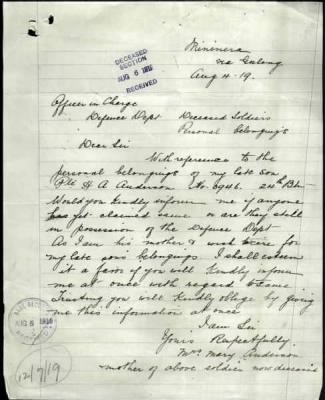 Mininera
via Geelong
Aug 4-19.
DECEASED
SECTION
AUG 6 1919
RECEIVED
Officer in Charge
Defence Dept Deceased Soldiers
Personal belongings
Dear Sir
With reference to the
personal belongings of my late son
Pte H A Anderson No. 6946. 24th Btn
Would you kindly inform me if anyone
has yet claimed same or are they still
in possession of the Defence Dept
As I am his mother & wish were for
my late sons belongings. I shall esteem
it a favor if you will kindly inform
me at once with regard to same
Trusting you will kindly oblige by giving
me this information at once
I am Sir
Yours Respectfully
Mrs Mary Anderson
mother of above soldier now deceased
AUG 6 1919
12/7/19